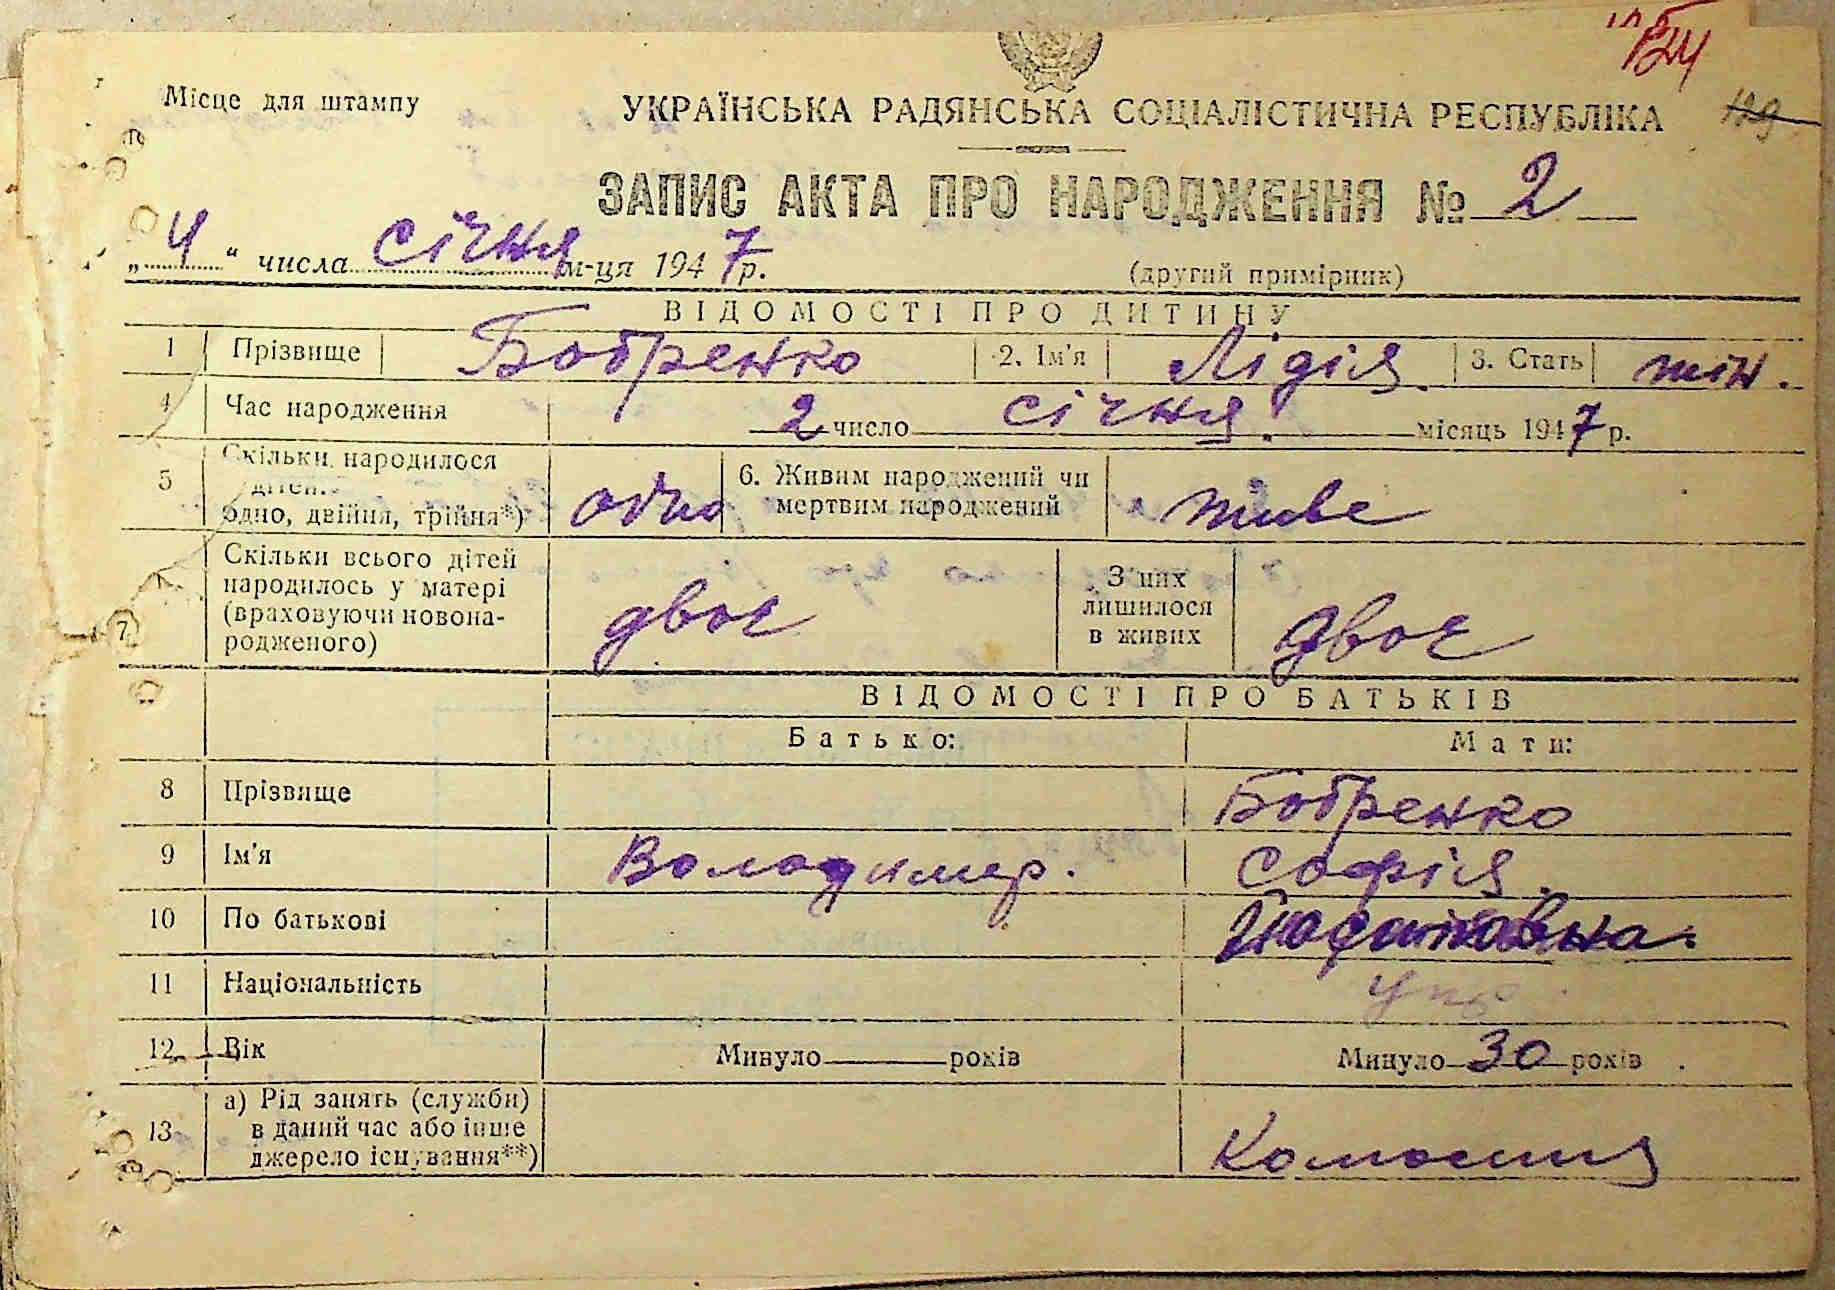 124
129
Місце для штампу
УКРАЇНСЬКА РАДЯНСЬКА СОЦІАЛІСТИЧНА РЕСПУБЛІКА
ЗАПИС АКТА ПРО НАРОДЖЕННЯ № 2
„4“ числа січня м-ця 1947 р.
(другий примірник)
ВІДОМОСТІ ПРО ДИТИНУ
1 Прізвище Бобренко 2. Ім'я Лідія. 3. Стать жін.
4 Час народження 2 число січня. місяць 1947 р.
5 Скільки народилося дітей:
одно, двійня, трійня*) одно 6. Живим народжений чи мертвим народжений живе
7 Скільки всього дітей
народилось у матері
(враховуючи новона-
родженого) двоє З них лишилося в живих двоє
ВІДОМОСТІ ПРО БАТЬКІВ
Батько: Мати:
8 Прізвище Бобренко
9 Ім'я Володимер. Софія.
10 По батькові
11 Національність укр
12 Вік Минуло років Минуло 30 років
13 а) Рід занять (служби)
в даний час або інше
джерело існування**)